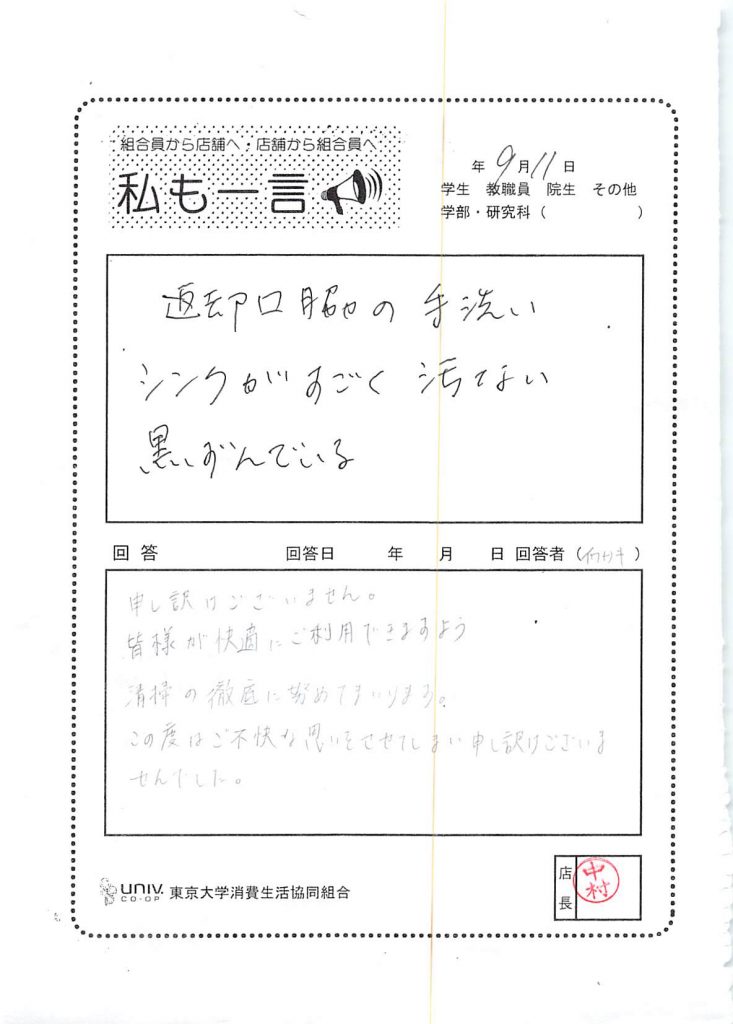 組合員から店舗へ・店舗から組合員へ
私も一言
年 9月11日
学生 教職員 院生 その他
学部・研究科( )
返却口脇の手洗い
シンクがすごく汚てない
黒いずんでいる
回答 回答日 年 月 日 回答者(イワサキ)
申し訳けございません。
皆様が快適にご利用できますよう
清掃の徹底に努めてまいります。
この度はご不快な思いをさせてしまい申し訳けございま
せんでした。
UNIV. CO-OP 東京大学消費生活協同組合
店長
中村